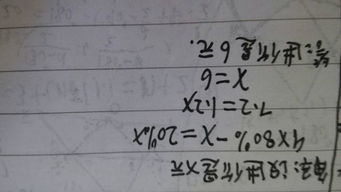 解:设进价是x元
9×80%-x=20%x
7.2=1.2x
x=6
答:进价是6元.